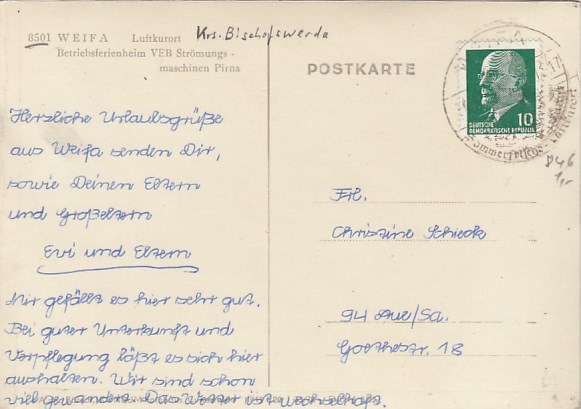 8501 WEIFA Luftkurort Krs. Bischofswerda
Betriebsferienheim VEB Strömungs-
maschinen Pirna
POSTKARTE
10
DEUTSCHE
DEMOKRATISCHE REPUBLIK
Sommerfrische
Luftkurort
Herzliche Urlaubsgrüße
aus Weifa senden Dir,
sowie Deinen Eltern
und Großeltern
Evi und Eltern
Mir gefällt es hier sehr gut.
Bei guter Unterkunft und
Verpflegung läßt es sich hier
aushalten. Wir sind schon
viel gewandert. Das Wetter ist wechselhaft.
Frl.
Christine Schieck
94 Aue/Sa.
Goethestr. 18
846
1,-